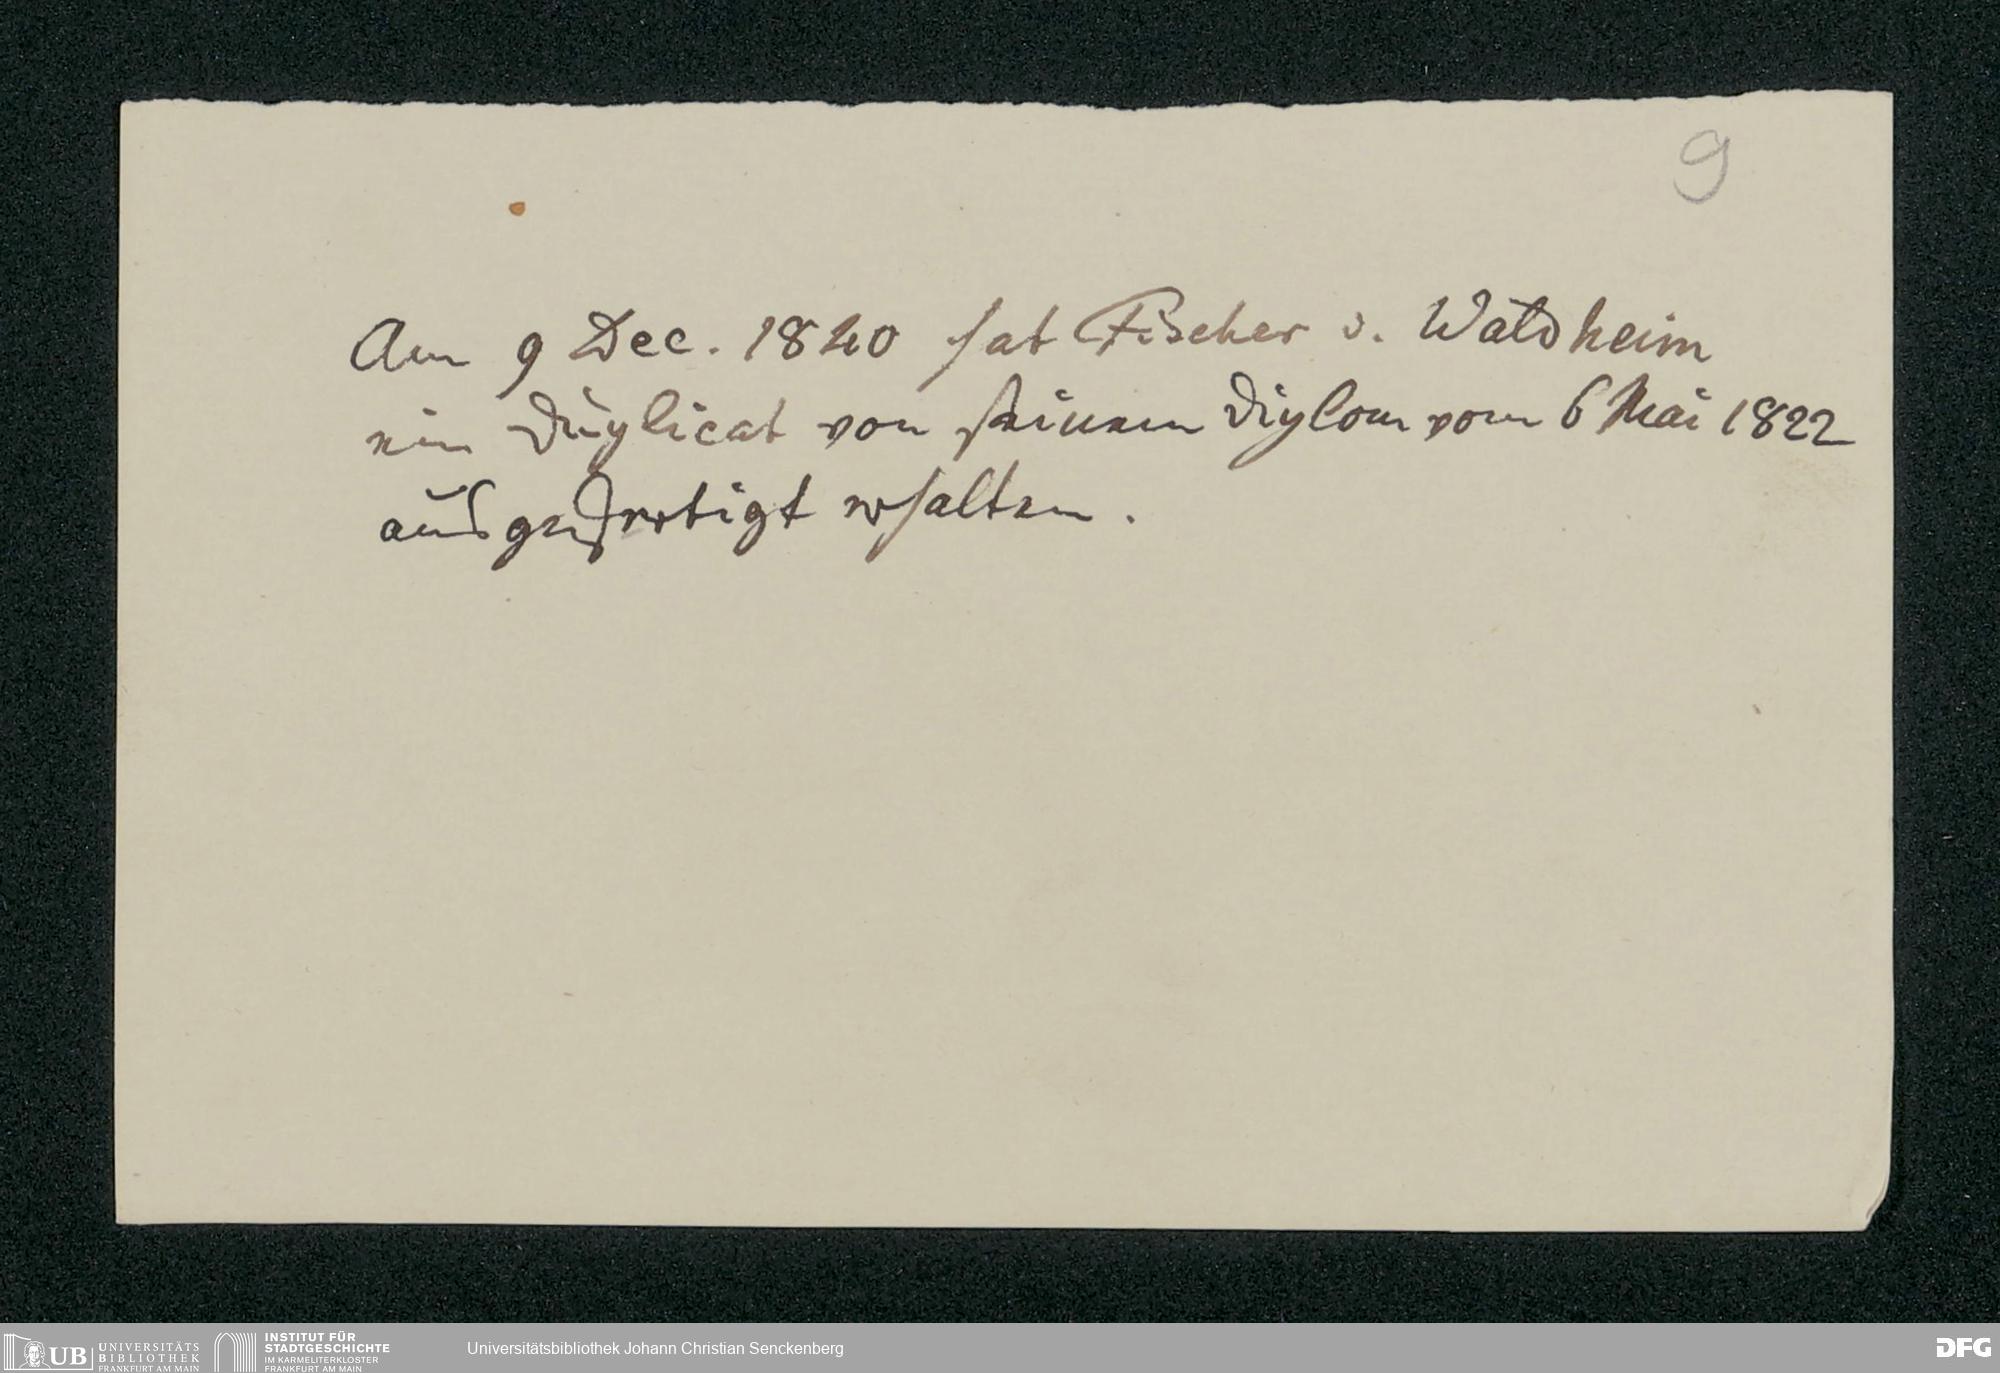 9
Am 9 Dec. 1840 hat Fischer v. Waldheim
ein Duplicat von seinem Diplom vom 6 Mai 1822
ausgefertigt erhalten.
UB UNIVERSITÄTS
BIBLIOTHEK
FRANKFURT AM MAIN
INSTITUT FÜR
STADTGESCHICHTE
IM KARMELITERKLOSTER
FRANKFURT AM MAIN
Universitätsbibliothek Johann Christian Senckenberg
DFG